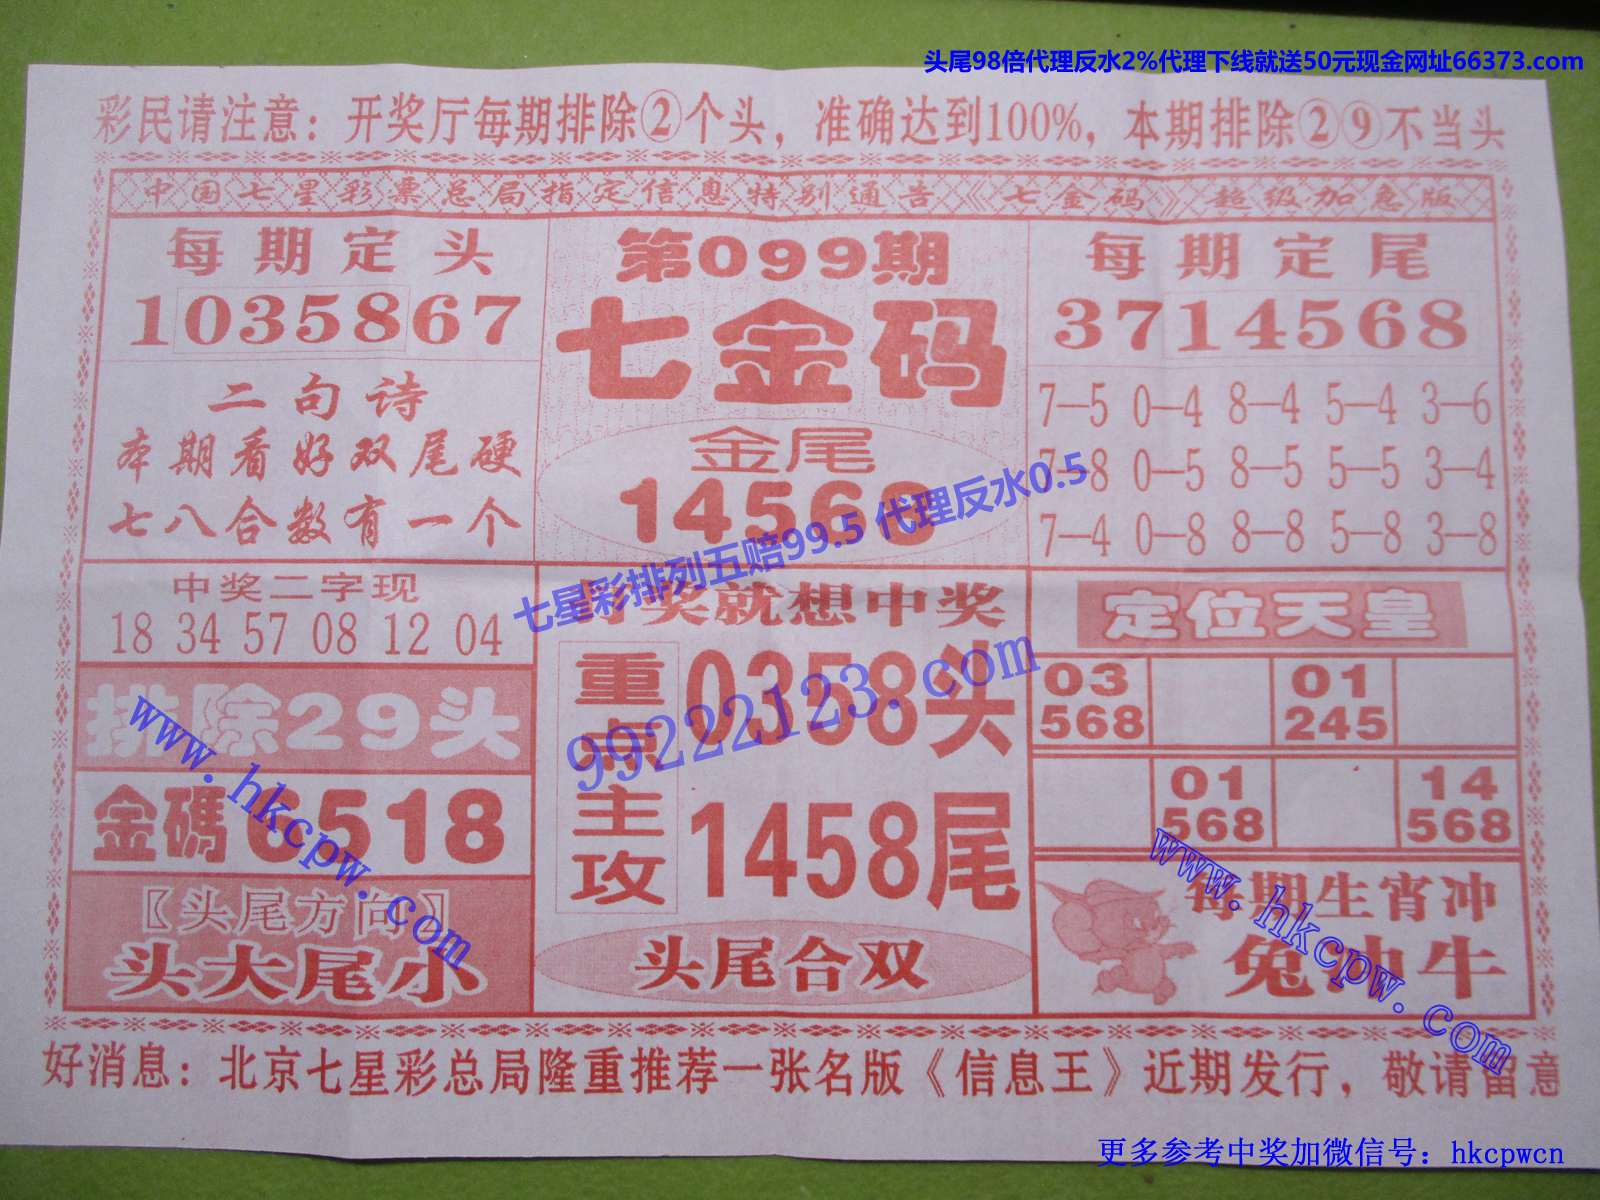 头尾98倍代理反水2%代理下线就送50元现金网址66373.com
彩民请注意：开奖厅每期排除②个头，准确达到100%，本期排除②⑨不当头
中国七星彩票总局指定信息特别通告《七金码》超级加急版
每期定头
1035867
二句诗
本期看好双尾硬
七八合数有一个
第099期
七金码
金尾
14568
每期定尾
3714568
7—5 0—4 8—4 5—4 3—6
7—8 0—5 8—5 5—5 3—4
7—4 0—8 8—8 5—8 3—8
七星彩排列五赔99.5 代理反水0.5
中奖二字现
18 34 57 08 12 04
排除29头
金碼6518
〖头尾方向〗
头大尾小
奖就想中奖
重点主攻
0358头
1458尾
头尾合双
99222123.com
定位天皇
03 01
568 245
01 14
568 568
每期生肖冲
兔冲牛
www.hkcpw.com
www.hkcpw.com
好消息：北京七星彩总局隆重推荐一张名版《信息王》近期发行，敬请留意
更多参考中奖加微信号：hkcpwcn